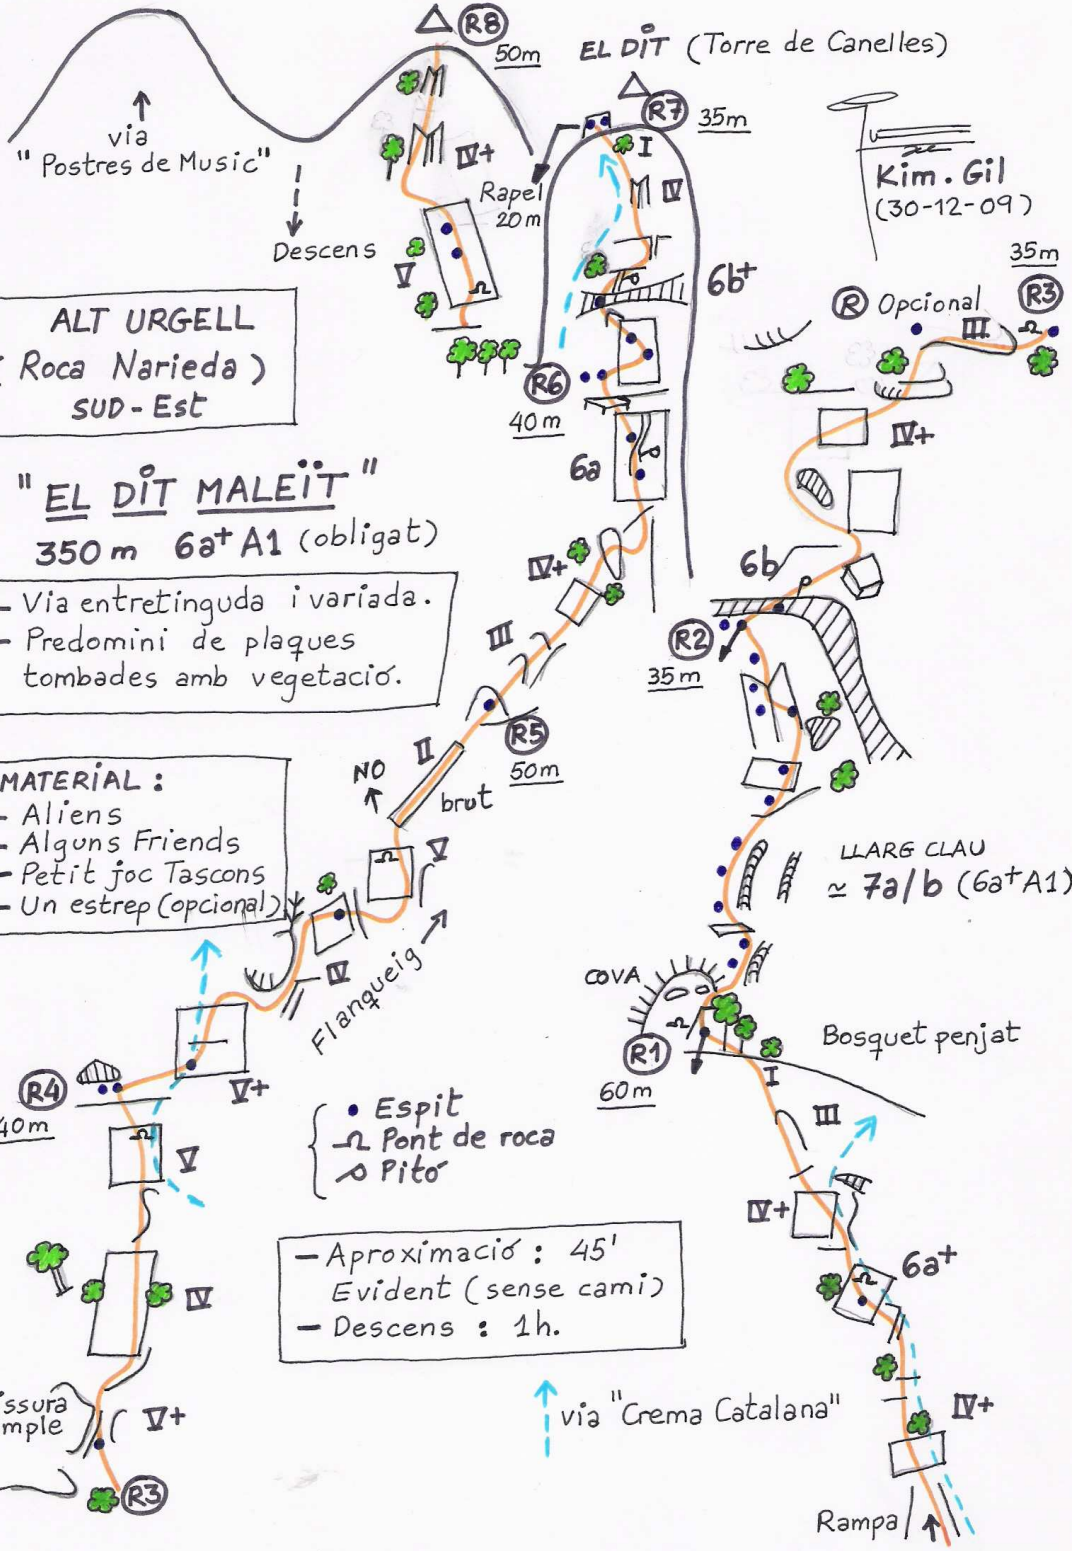 R8
50m
EL DIT (Torre de Canelles)
via
"Postres de Music"
Descens
IV+
V
Rapel
20m
R7
35m
I
IV
6b+
R6
40m
6a
IV+
III
Kim.Gil
(30-12-09)
35m
R Opcional
III
R3
IV+
6b
R2
35m
ALT URGELL
(Roca Narieda)
SUD-Est
"EL DIT MALEÏT"
350m 6a+ A1 (obligat)
- Via entretinguda i variada.
- Predomini de plaques
tombades amb vegetació.
MATERIAL :
- Aliens
- Alguns Friends
- Petit joc Tascons
- Un estrep (opcional)
R5
50m
II
NO
brut
V
IV
Flanqueig
LLARG CLAU
≃ 7a/b (6a+A1)
COVA
R1
60m
Bosquet penjat
I
III
IV+
6a+
IV+
Rampa
R4
40m
V+
V
IV
V+
R3
Espit
Pont de roca
Pitó
- Aproximació : 45'
Evident (sense cami)
- Descens : 1h.
via "Crema Catalana"